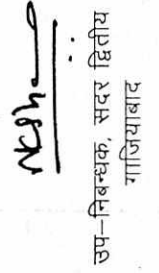 उप-निबन्धक, सदर द्वितीय
गाजियाबाद